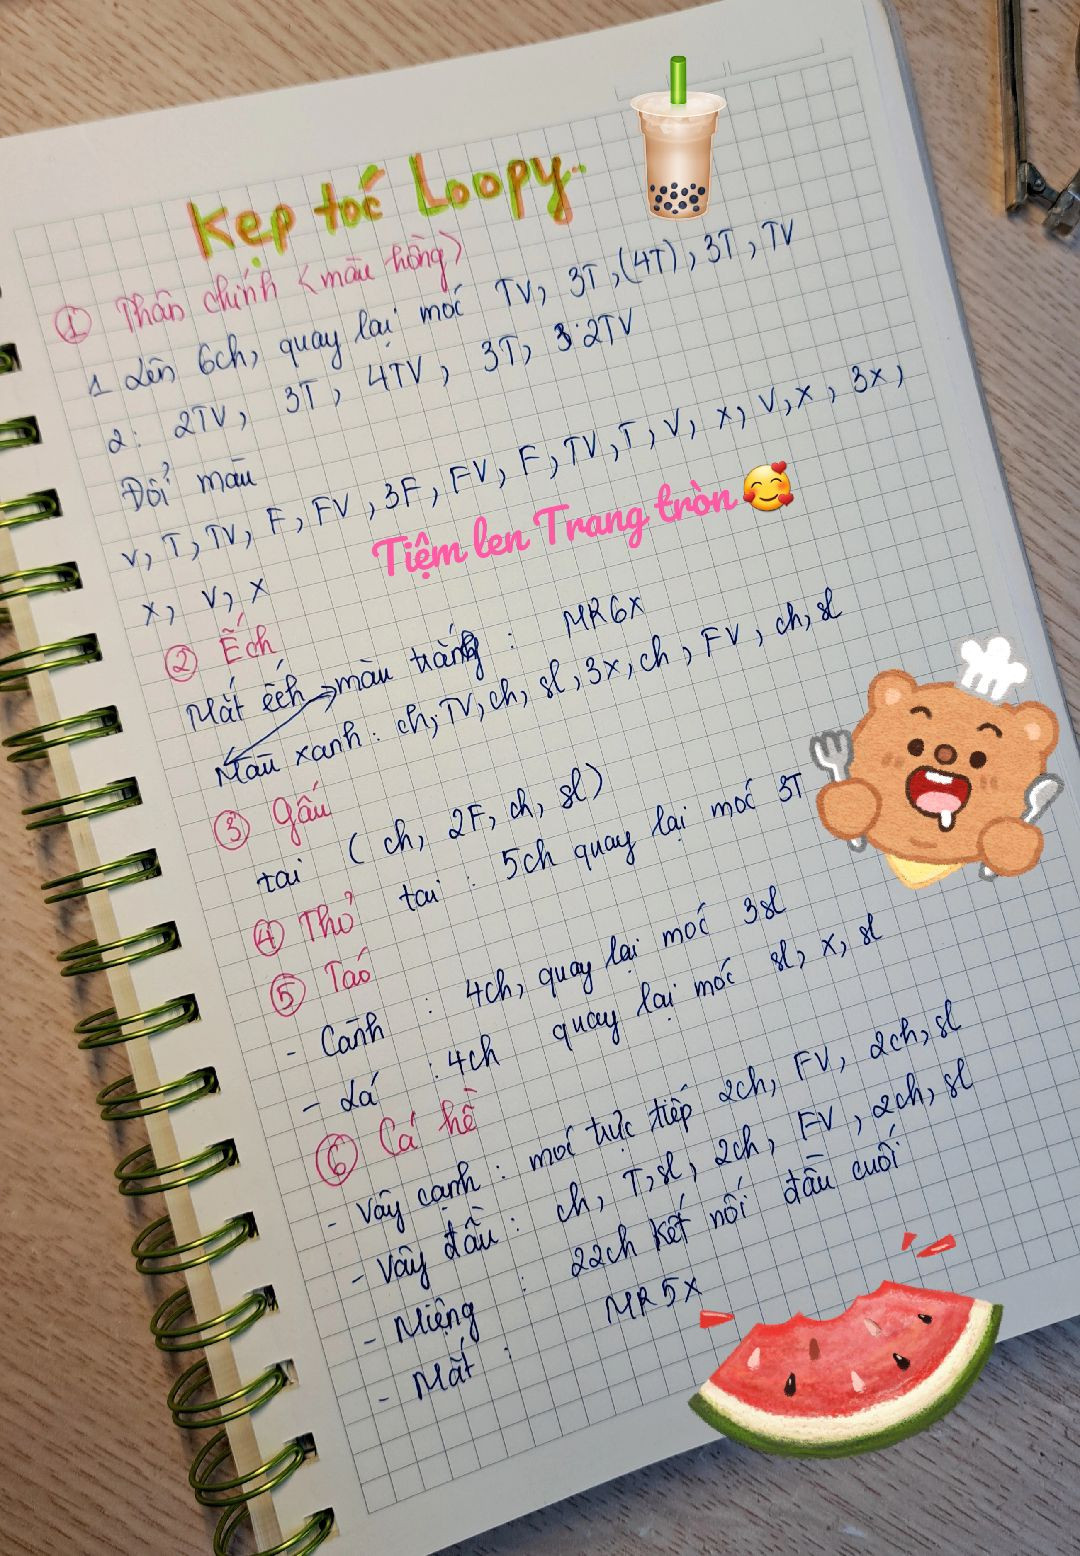 Kẹp tóc Loopy..
① Thân chính <màu hồng>
1 Lên 6ch, quay lại móc TV, 3T, (4T), 3T, TV
2: 2TV, 3T, 4TV, 3T, 2TV
Đổi màu
V, T, TV, F, FV, 3F, FV, F, TV, T, V, x, V, x, 3x,
x, V, x
Tiệm len Trang tròn 🥰
② Ếch
Mắt ếch → màu trắng : MR6X
Màu xanh : ch, TV, ch, sl, 3x, ch, FV, ch, sl
③ Gấu
tai ( ch, 2F, ch, sl )
④ Thỏ tai : 5ch quay lại móc 3T
⑤ Táo
- Cành : 4ch, quay lại móc 3sl
- Lá : 4ch quay lại móc sl, x, sl
⑥ Cá hề
- Vây cạnh : móc trực tiếp 2ch, FV, 2ch, sl
- Vây đầu : ch, T, sl, 2ch, FV, 2ch, sl
- Miệng : 22ch kết nối đầu cuối
- Mắt : MR5X